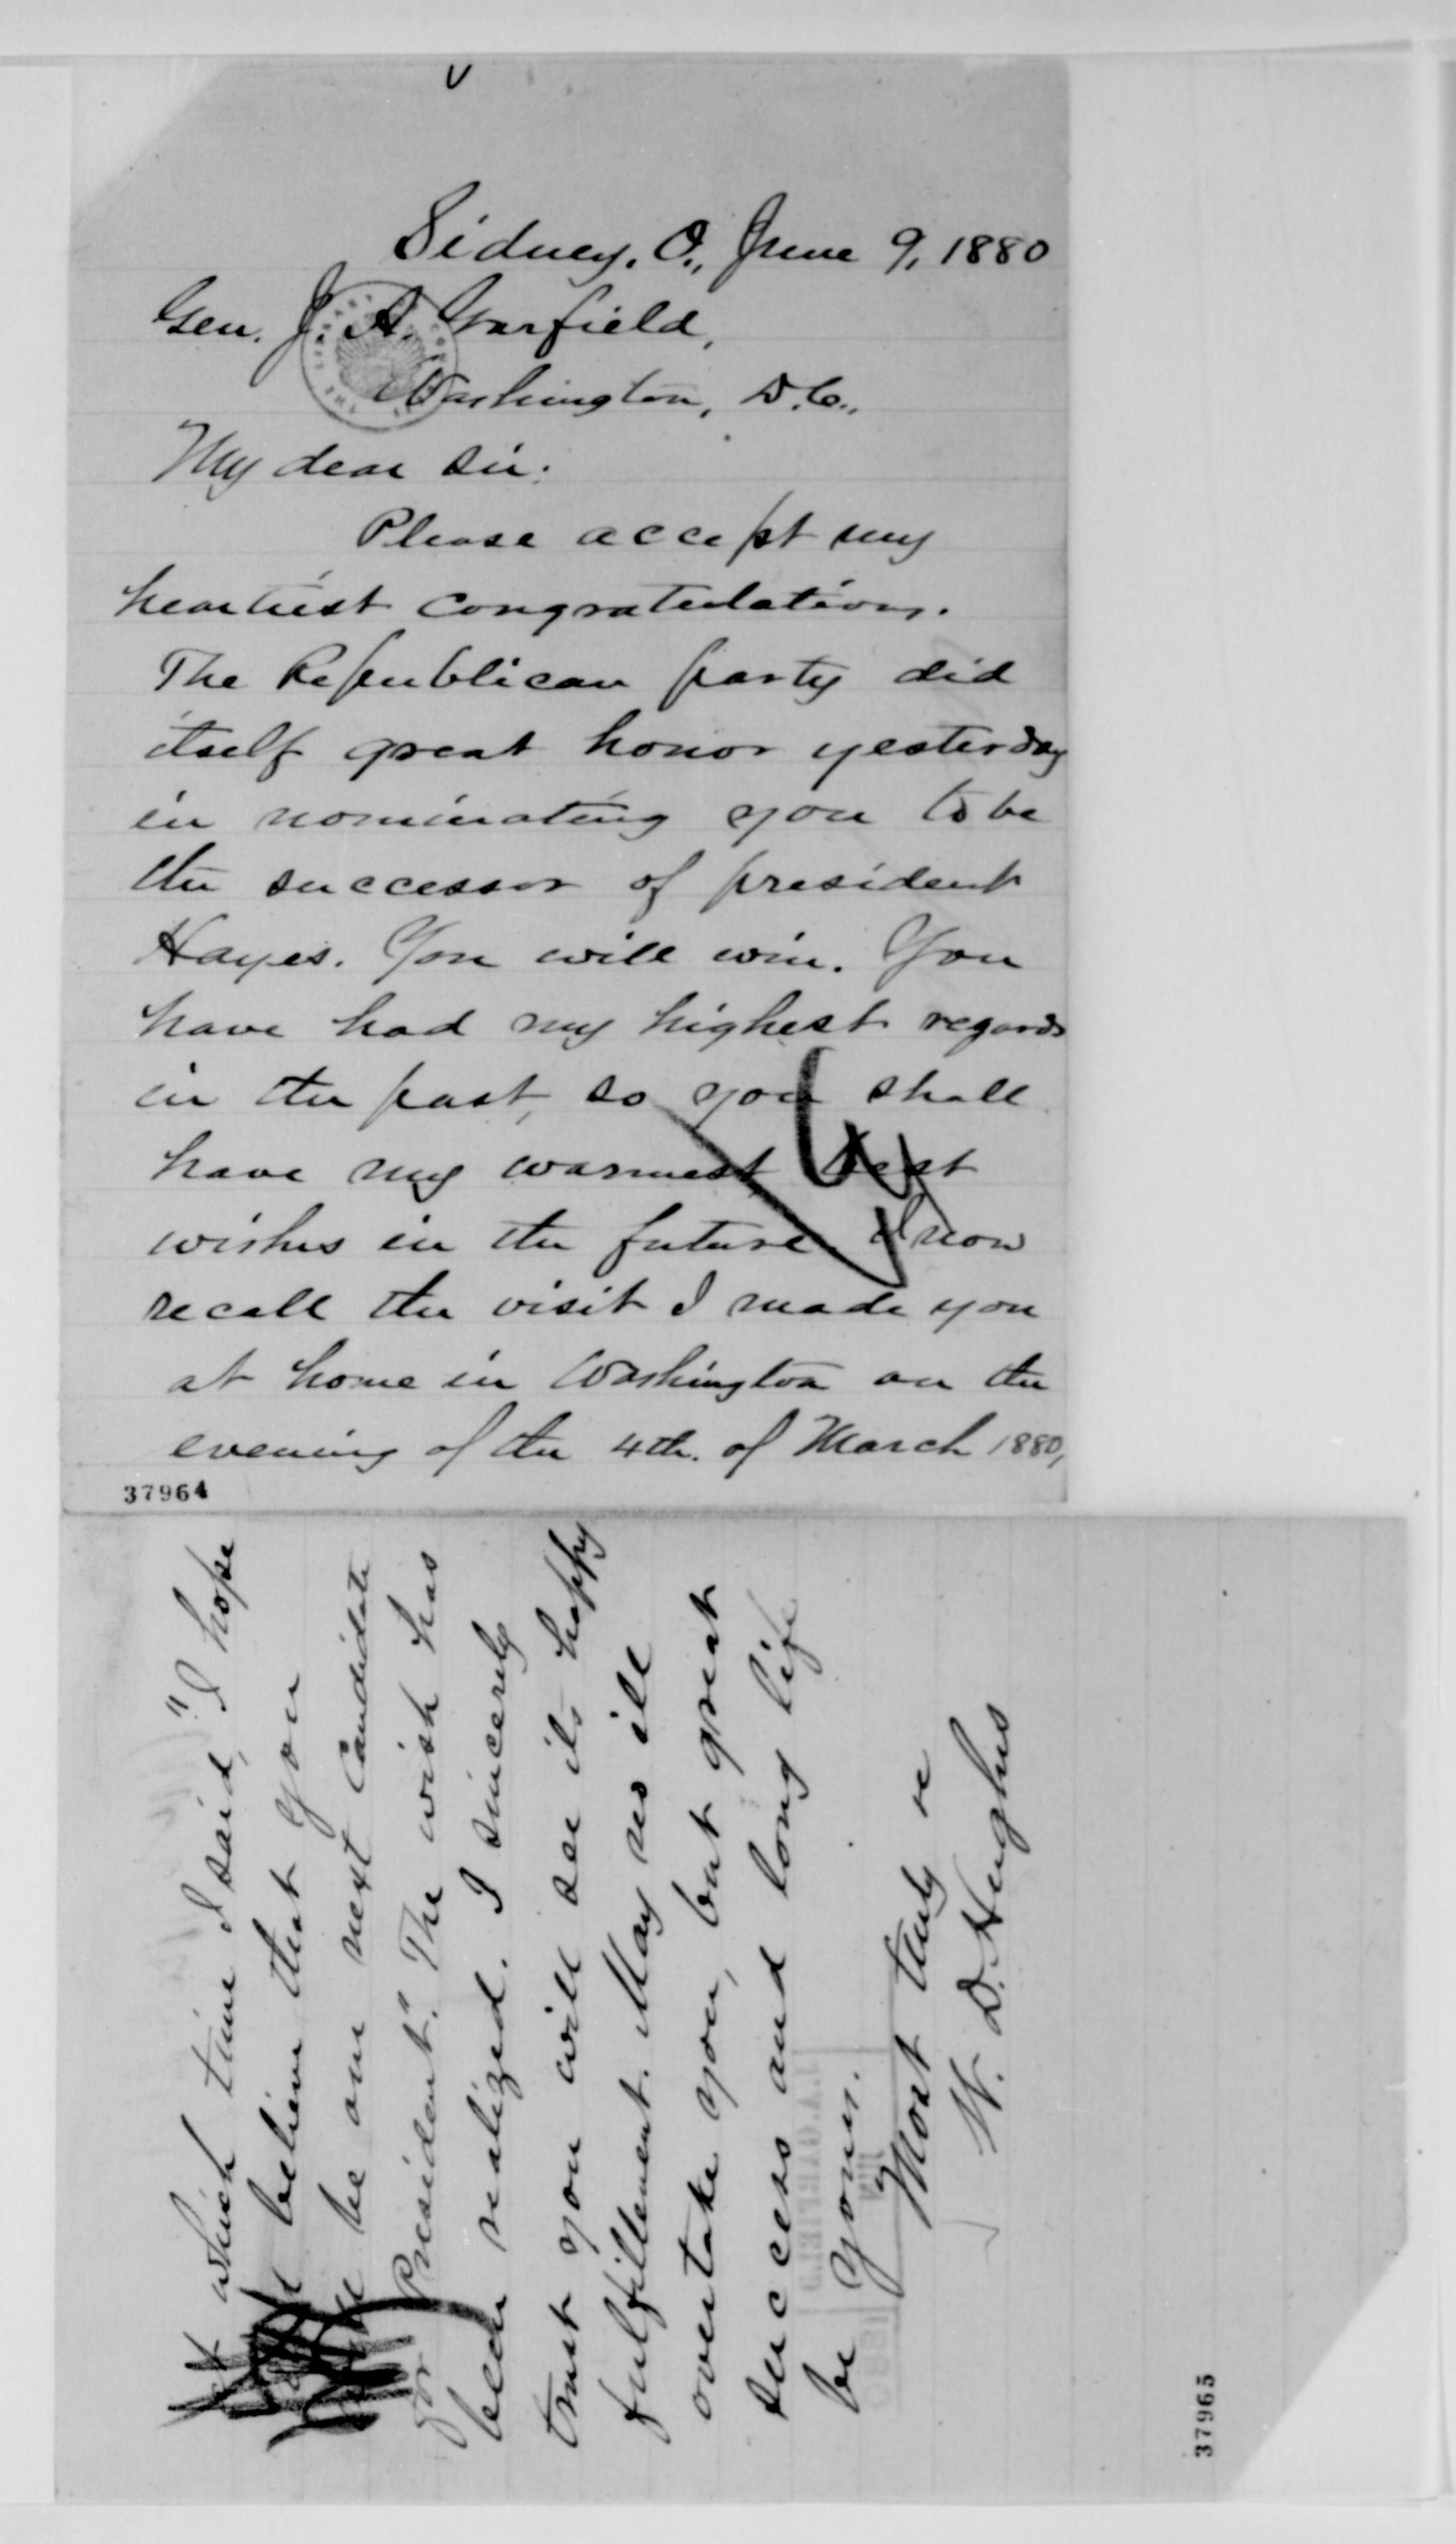 Sidney, O., June 9, 1880
Gen. J. A. Garfield,
Washington, D.C.,
My dear sir:
Please accept my
heartiest congratulations.
The Republican party did
itself great honor yesterday
in nominating you to be
the successor of president
Hayes. You will win. You
have had my highest regards
in the past, so you shall
have my warmest best
wishes in the future. I now
recall the visit I made you
at home in Washington on the
evening of the 4th. of March 1880,
37964
at which time I said, "I hope
and believe that you
will be our next Candidate
for President." The wish has
been realized. I sincerely
trust you will see its happy
fulfillment. May no ill
overtake you, but great
success and long life
be yours.
Most truly
W. D. Hughes
J.A. GARFIELD
JUN
1880
37965